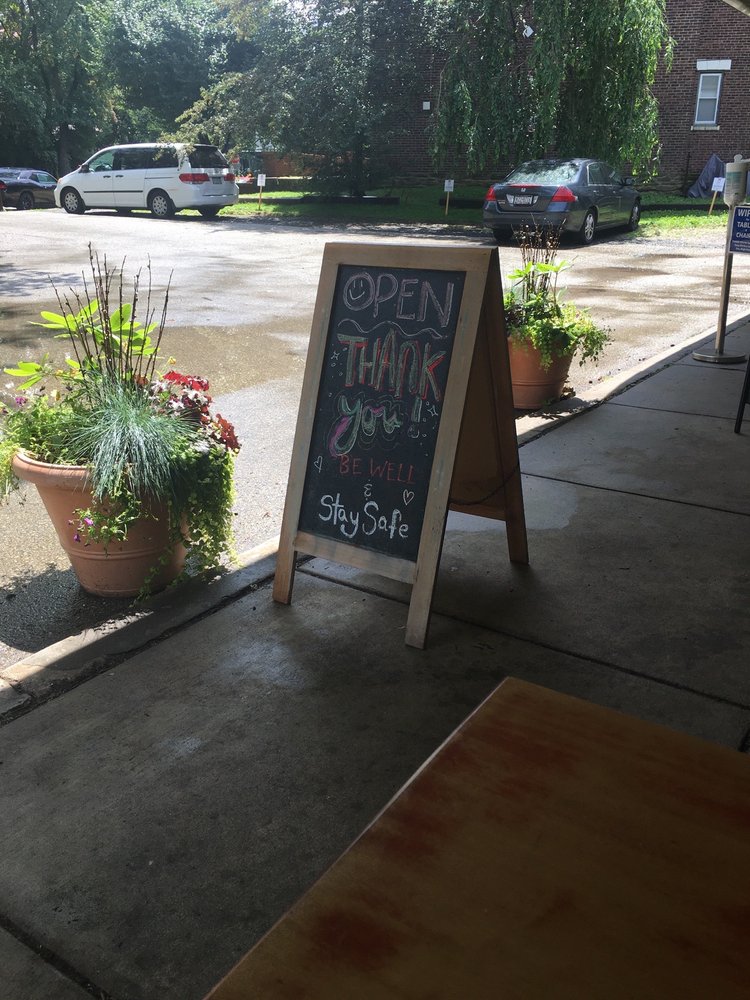 OPEN
THANK
you!
BE WELL
&
Stay Safe